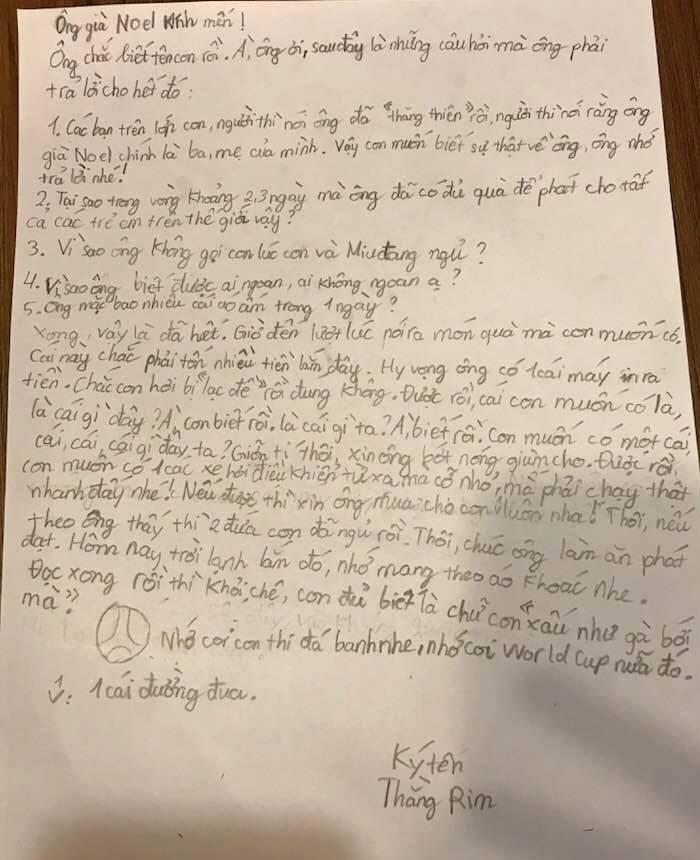 Ông già Noel kính mến!
Ông chắc biết tên con rồi. À, ông ơi, sau đây là những câu hỏi mà ông phải
trả lời cho hết đó:
1. Các bạn trên lớp con, người thì nói ông đã "thăng thiên" rồi, người thì nói rằng ông
già Noel chính là ba, mẹ của mình. Vậy con muốn biết sự thật về ông, ông nhớ
trả lời nhé!
2. Tại sao trong vòng khoảng 2,3 ngày mà ông đã có đủ quà để phát cho tất
cả các trẻ em trên thế giới vậy?
3. Vì sao ông không gọi con lúc con và Miu đang ngủ?
4. Vì sao ông biết được ai ngoan, ai không ngoan ạ?
5. Ông mặc bao nhiêu cái áo ấm trong 1 ngày?
Xong, vậy là đã hết. Giờ đến lượt lúc nói ra món quà mà con muốn có.
Cái này chắc phải tốn nhiều tiền lắm đây. Hy vọng ông có 1 cái máy in ra
tiền. Chắc con hơi bị "lạc đề" rồi đúng không. Được rồi, cái con muốn có là,
là cái gì đây? À, con biết rồi. là cái gì ta? À, biết rồi. Con muốn có một cái,
cái, cái, cái gì đây ta? Giỡn tí thôi, xin ông bớt nóng giùm cho. Được rồi,
con muốn có 1 các xe hơi điều khiển từ xa mà cỡ nhỏ, mà phải chạy thật
nhanh đấy nhé! Nếu được thì xin ông mua cho con luôn nha! Thôi, nếu
theo ông thấy thì 2 đứa con đã ngủ rồi. Thôi, chúc ông làm ăn phát
đạt. Hôm nay trời lạnh lắn đó, nhớ mang theo áo khoác nhe.
Đọc xong rồi thì khỏi chê, con đủ biết là chữ con "xấu như gà bới
mà".
Nhớ coi con thi đá banh nhe, nhớ coi World Cup nữa đó.
1 cái đường đua.
Ký tên
Thằng Rim